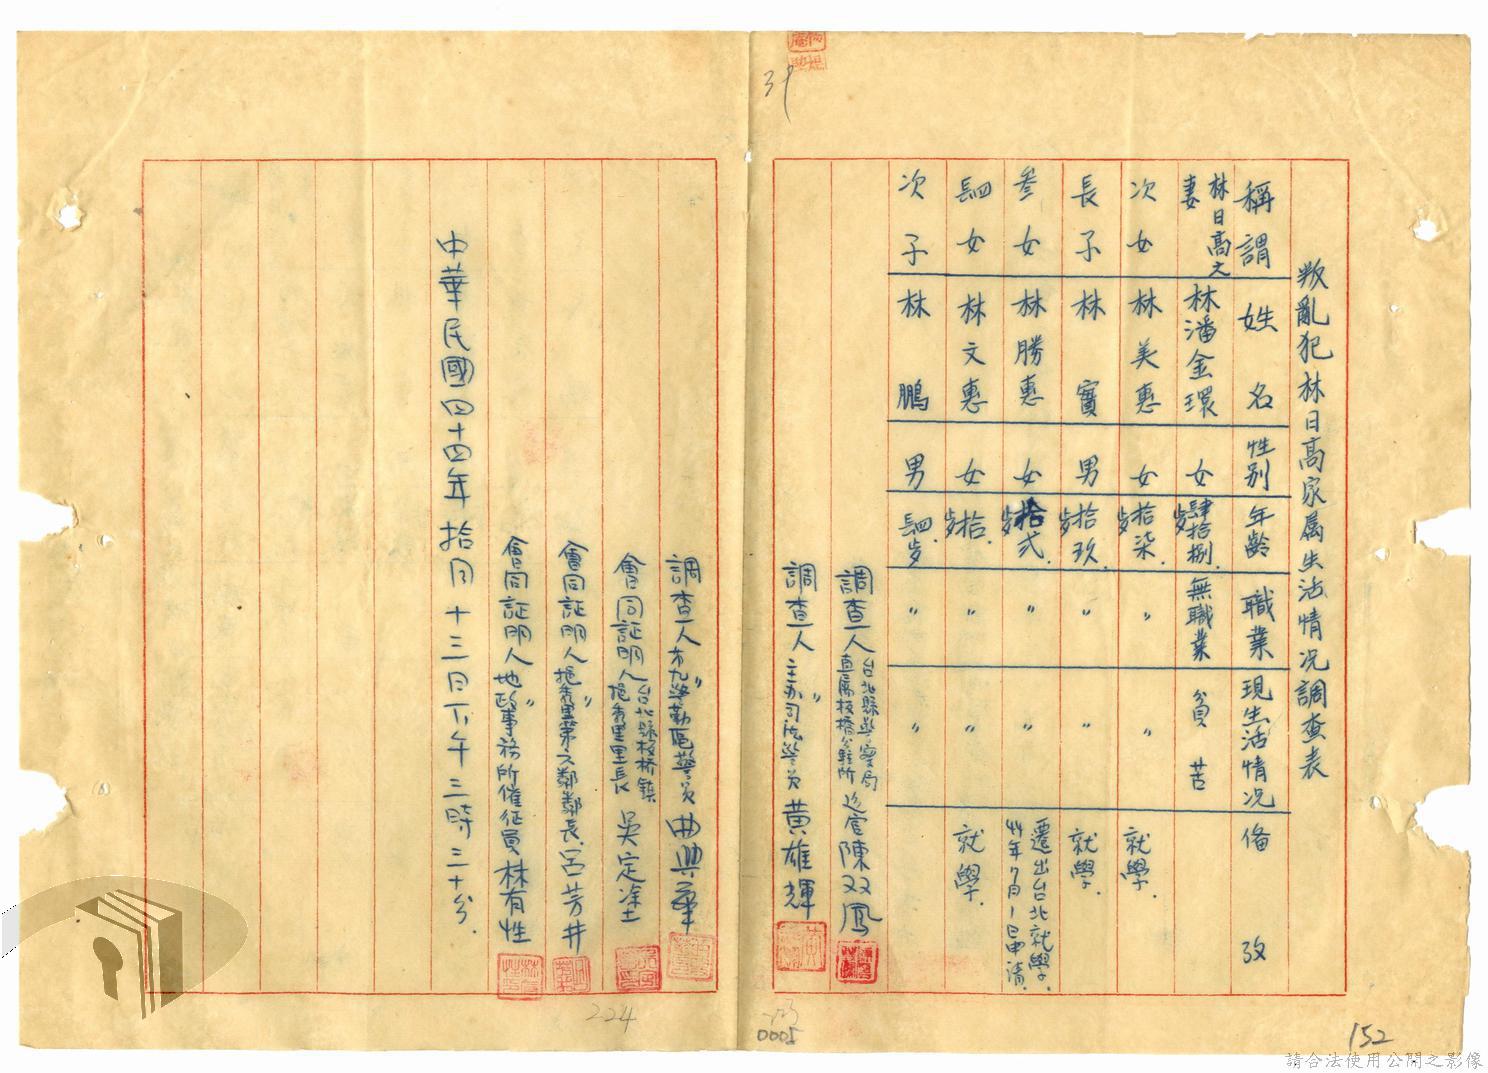 叛亂犯林日高家屬生活情况調查表
稱謂 姓名 性別 年齡 職業 現生活情况 俻攷
林日高之妻 林潘金環 女 肆拾捌歲 無職業 貧苦
次女 林美惠 女 拾柒歲 〃 〃 就學.
長子 林寶 男 拾玖歲 〃 〃 就學.
參女 林勝惠 女 拾弍歲 〃 〃 遷出台北就學. 44年7月1日申請.
肆女 林文惠 女 拾歲 〃 〃 就學.
次子 林鵬 男 肆歲 〃 〃
調查人 台北縣警察局直屬板橋分駐所 巡官 陳双鳳
調查人 〃 主办司法警員 黄雄輝
調查人 〃 才九警勤區警員 曲興華
會同証明人 台北縣板桥鎮挹秀里里長 吳定塗
會同証明人 〃 挹秀里第六鄰鄰長 呂芳井
會同証明人 〃 地政事務所催征員 林有性
中華民國四十四年拾月十三日下午三時三十分.
39
224
0005
152
請合法使用公開之影像